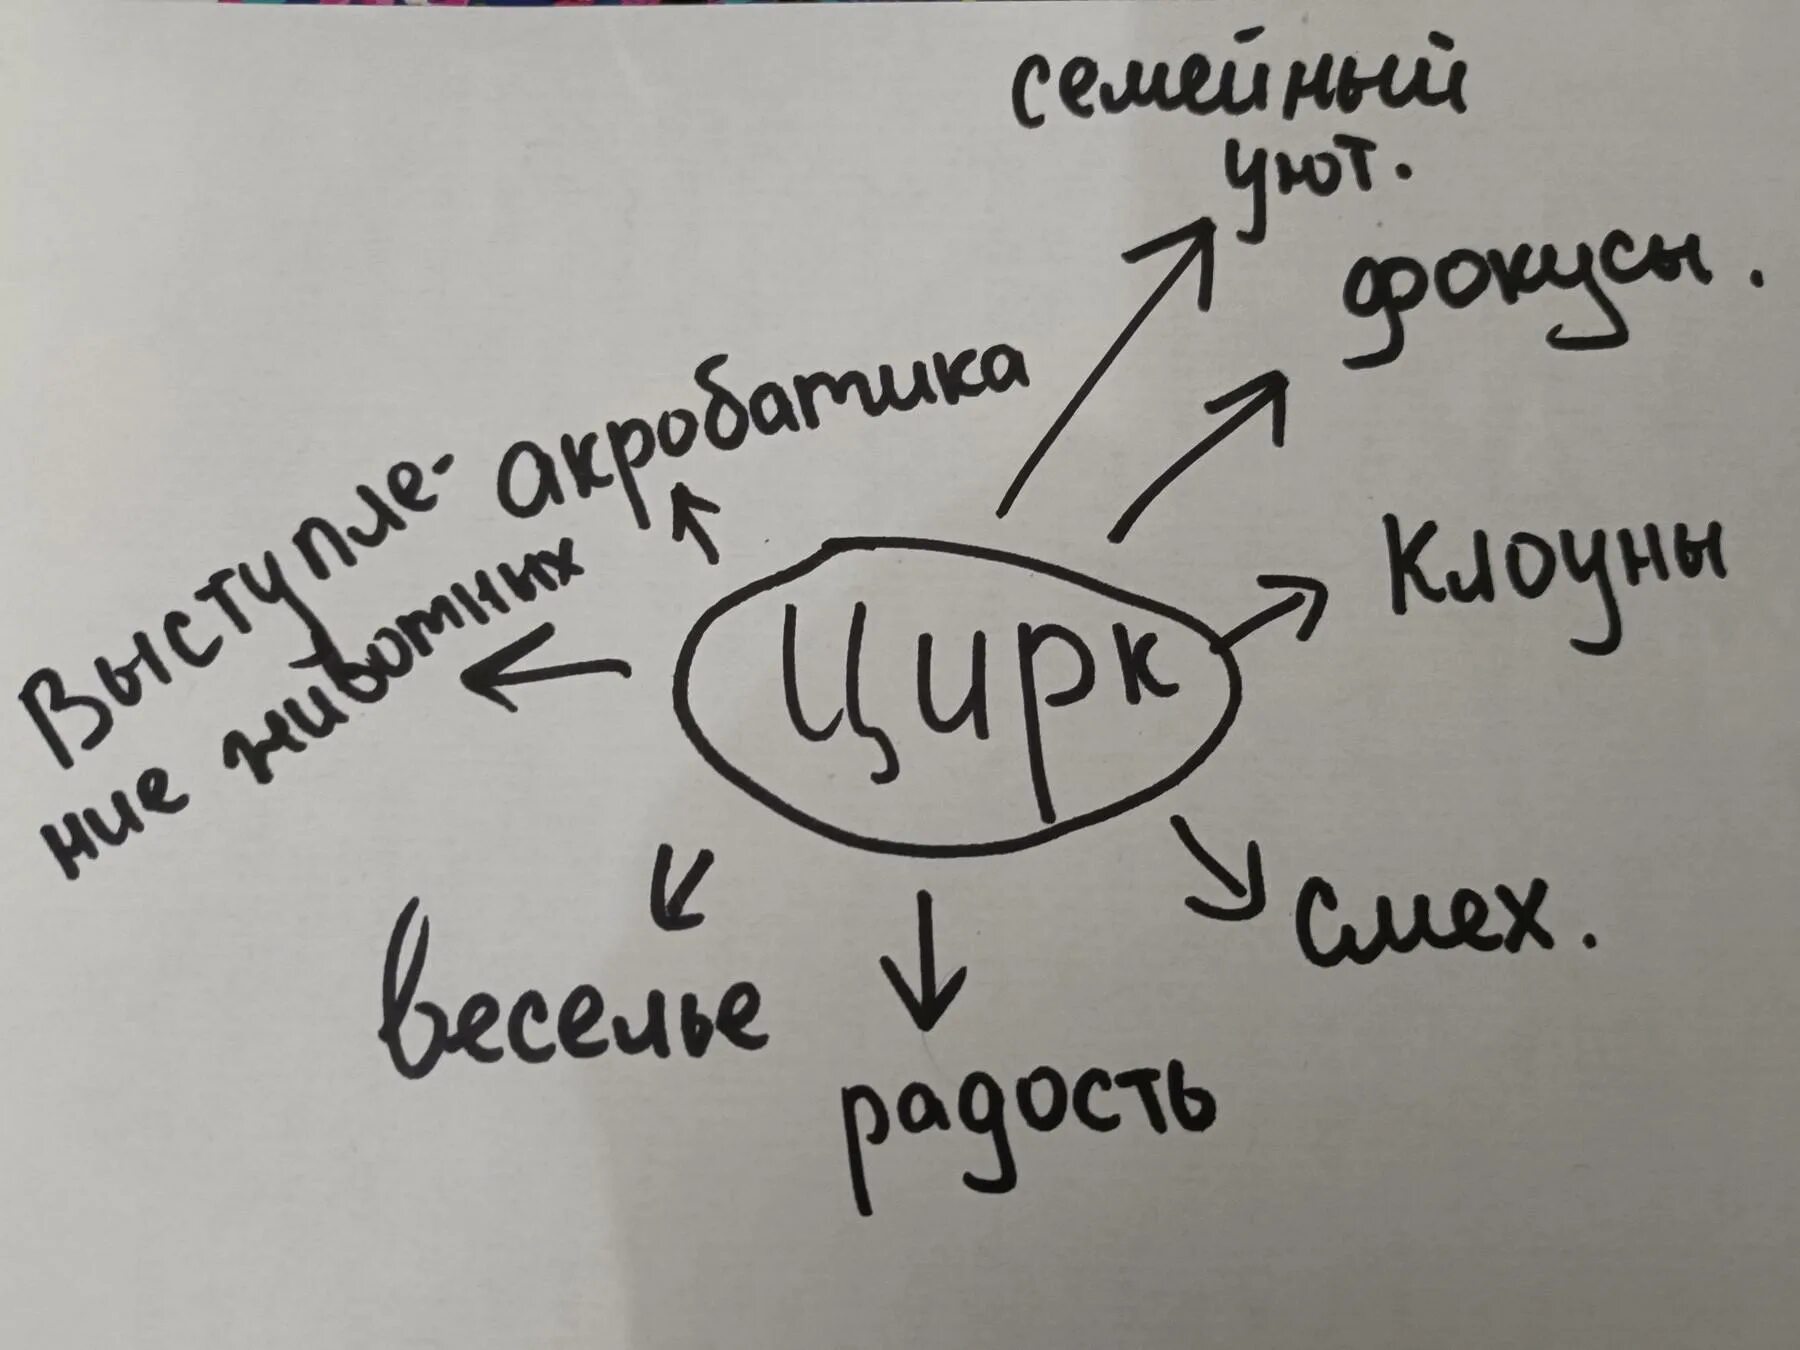 семейный
уют.
фокусы.
акробатика
Выступле-
ние животных
Клоуны
Цирк
Смех.
веселье
радость